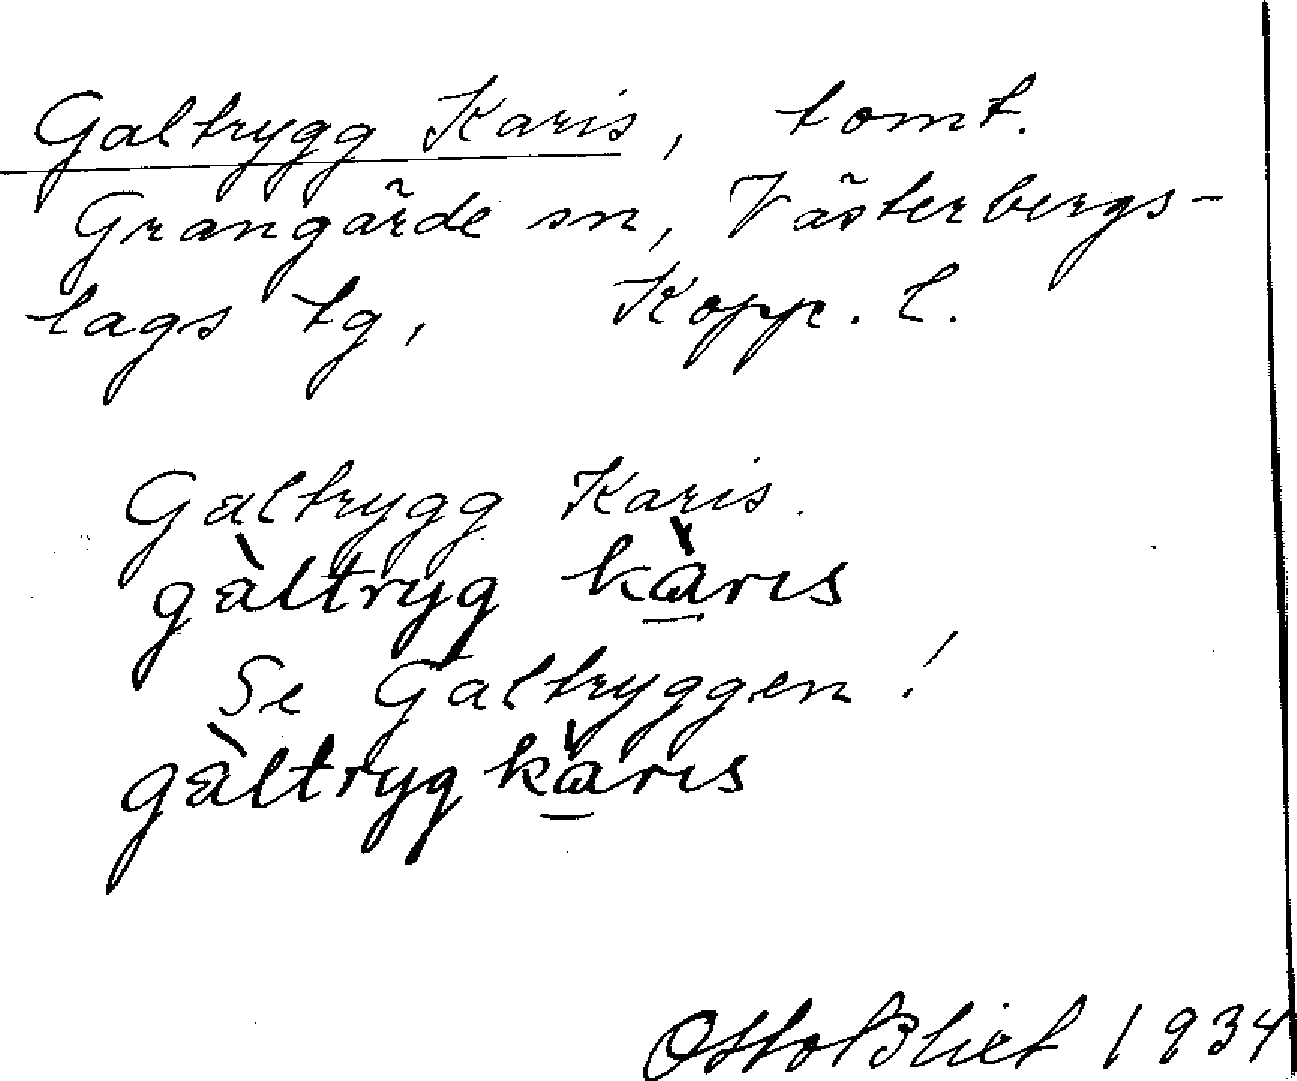 Galtrygg Karis, tomt.
Grangärde sn, Västerbergs-
lags tg, Kopp. l.
Galtrygg Karis.
gàltryg kàris
Se Galtryggen!
gàltrygkàris
Otto Blixt 1934